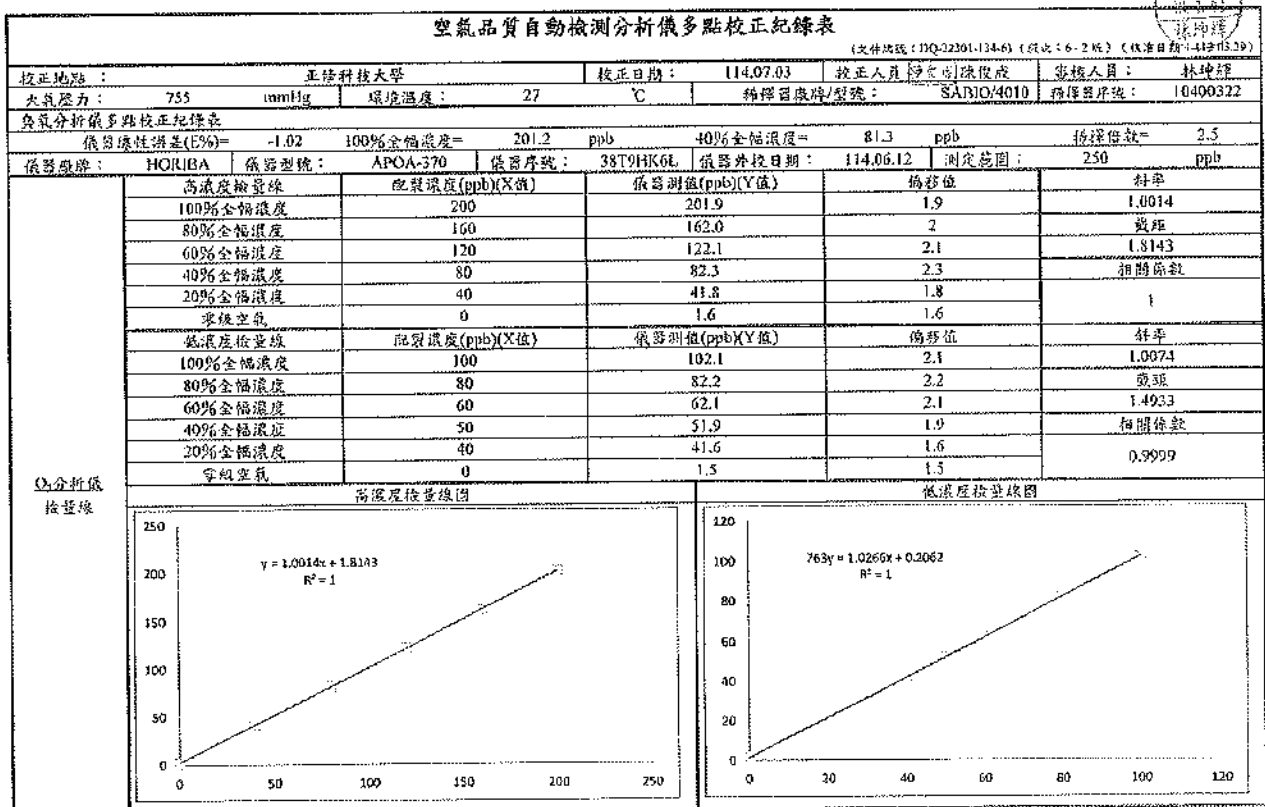 空氣品質自動檢測分析儀多點校正紀錄表
校正地點： 正修科技大學 校正日期： 114.07.03 校正人員 陳俊成 審核人員： 林坤輝
大氣壓力： 755 mmHg 環境溫度： 27 ℃ 稀釋器廠牌/型號： SABIO/4010 稀釋器序號： 10400322
臭氧分析儀多點校正紀錄表
儀器線性誤差(E%)= -1.02 100%全幅濃度= 201.2 ppb 40%全幅濃度= 81.3 ppb 稀釋倍數= 2.5
儀器廠牌： HORIBA 儀器型號： APOA-370 儀器序號： 38T9HK6L 儀器外校日期： 114.06.12 測定範圍： 250 ppb
高濃度檢量線 配製濃度(ppb)(X值) 儀器測值(ppb)(Y值) 偏移值 斜率
100%全幅濃度 200 201.9 1.9 1.0014
80%全幅濃度 160 162.0 2 截距
60%全幅濃度 120 122.1 2.1 1.8143
40%全幅濃度 80 82.3 2.3 相關係數
20%全幅濃度 40 41.8 1.8 1
零級空氣 0 1.6 1.6
低濃度檢量線 配製濃度(ppb)(X值) 儀器測值(ppb)(Y值) 偏移值 斜率
100%全幅濃度 100 102.1 2.1 1.0074
80%全幅濃度 80 82.2 2.2 截距
60%全幅濃度 60 62.1 2.1 1.4933
40%全幅濃度 50 51.9 1.9 相關係數
20%全幅濃度 40 41.6 1.6 0.9999
零級空氣 0 1.5 1.5
O₃分析儀
檢量線
高濃度檢量線圖 低濃度檢量線圖
y = 1.0014x + 1.8143
R² = 1
250
200
150
100
50
0
0 50 100 150 200 250
763y = 1.0266x + 0.2062
R² = 1
120
100
80
60
40
20
0
0 20 40 60 80 100 120